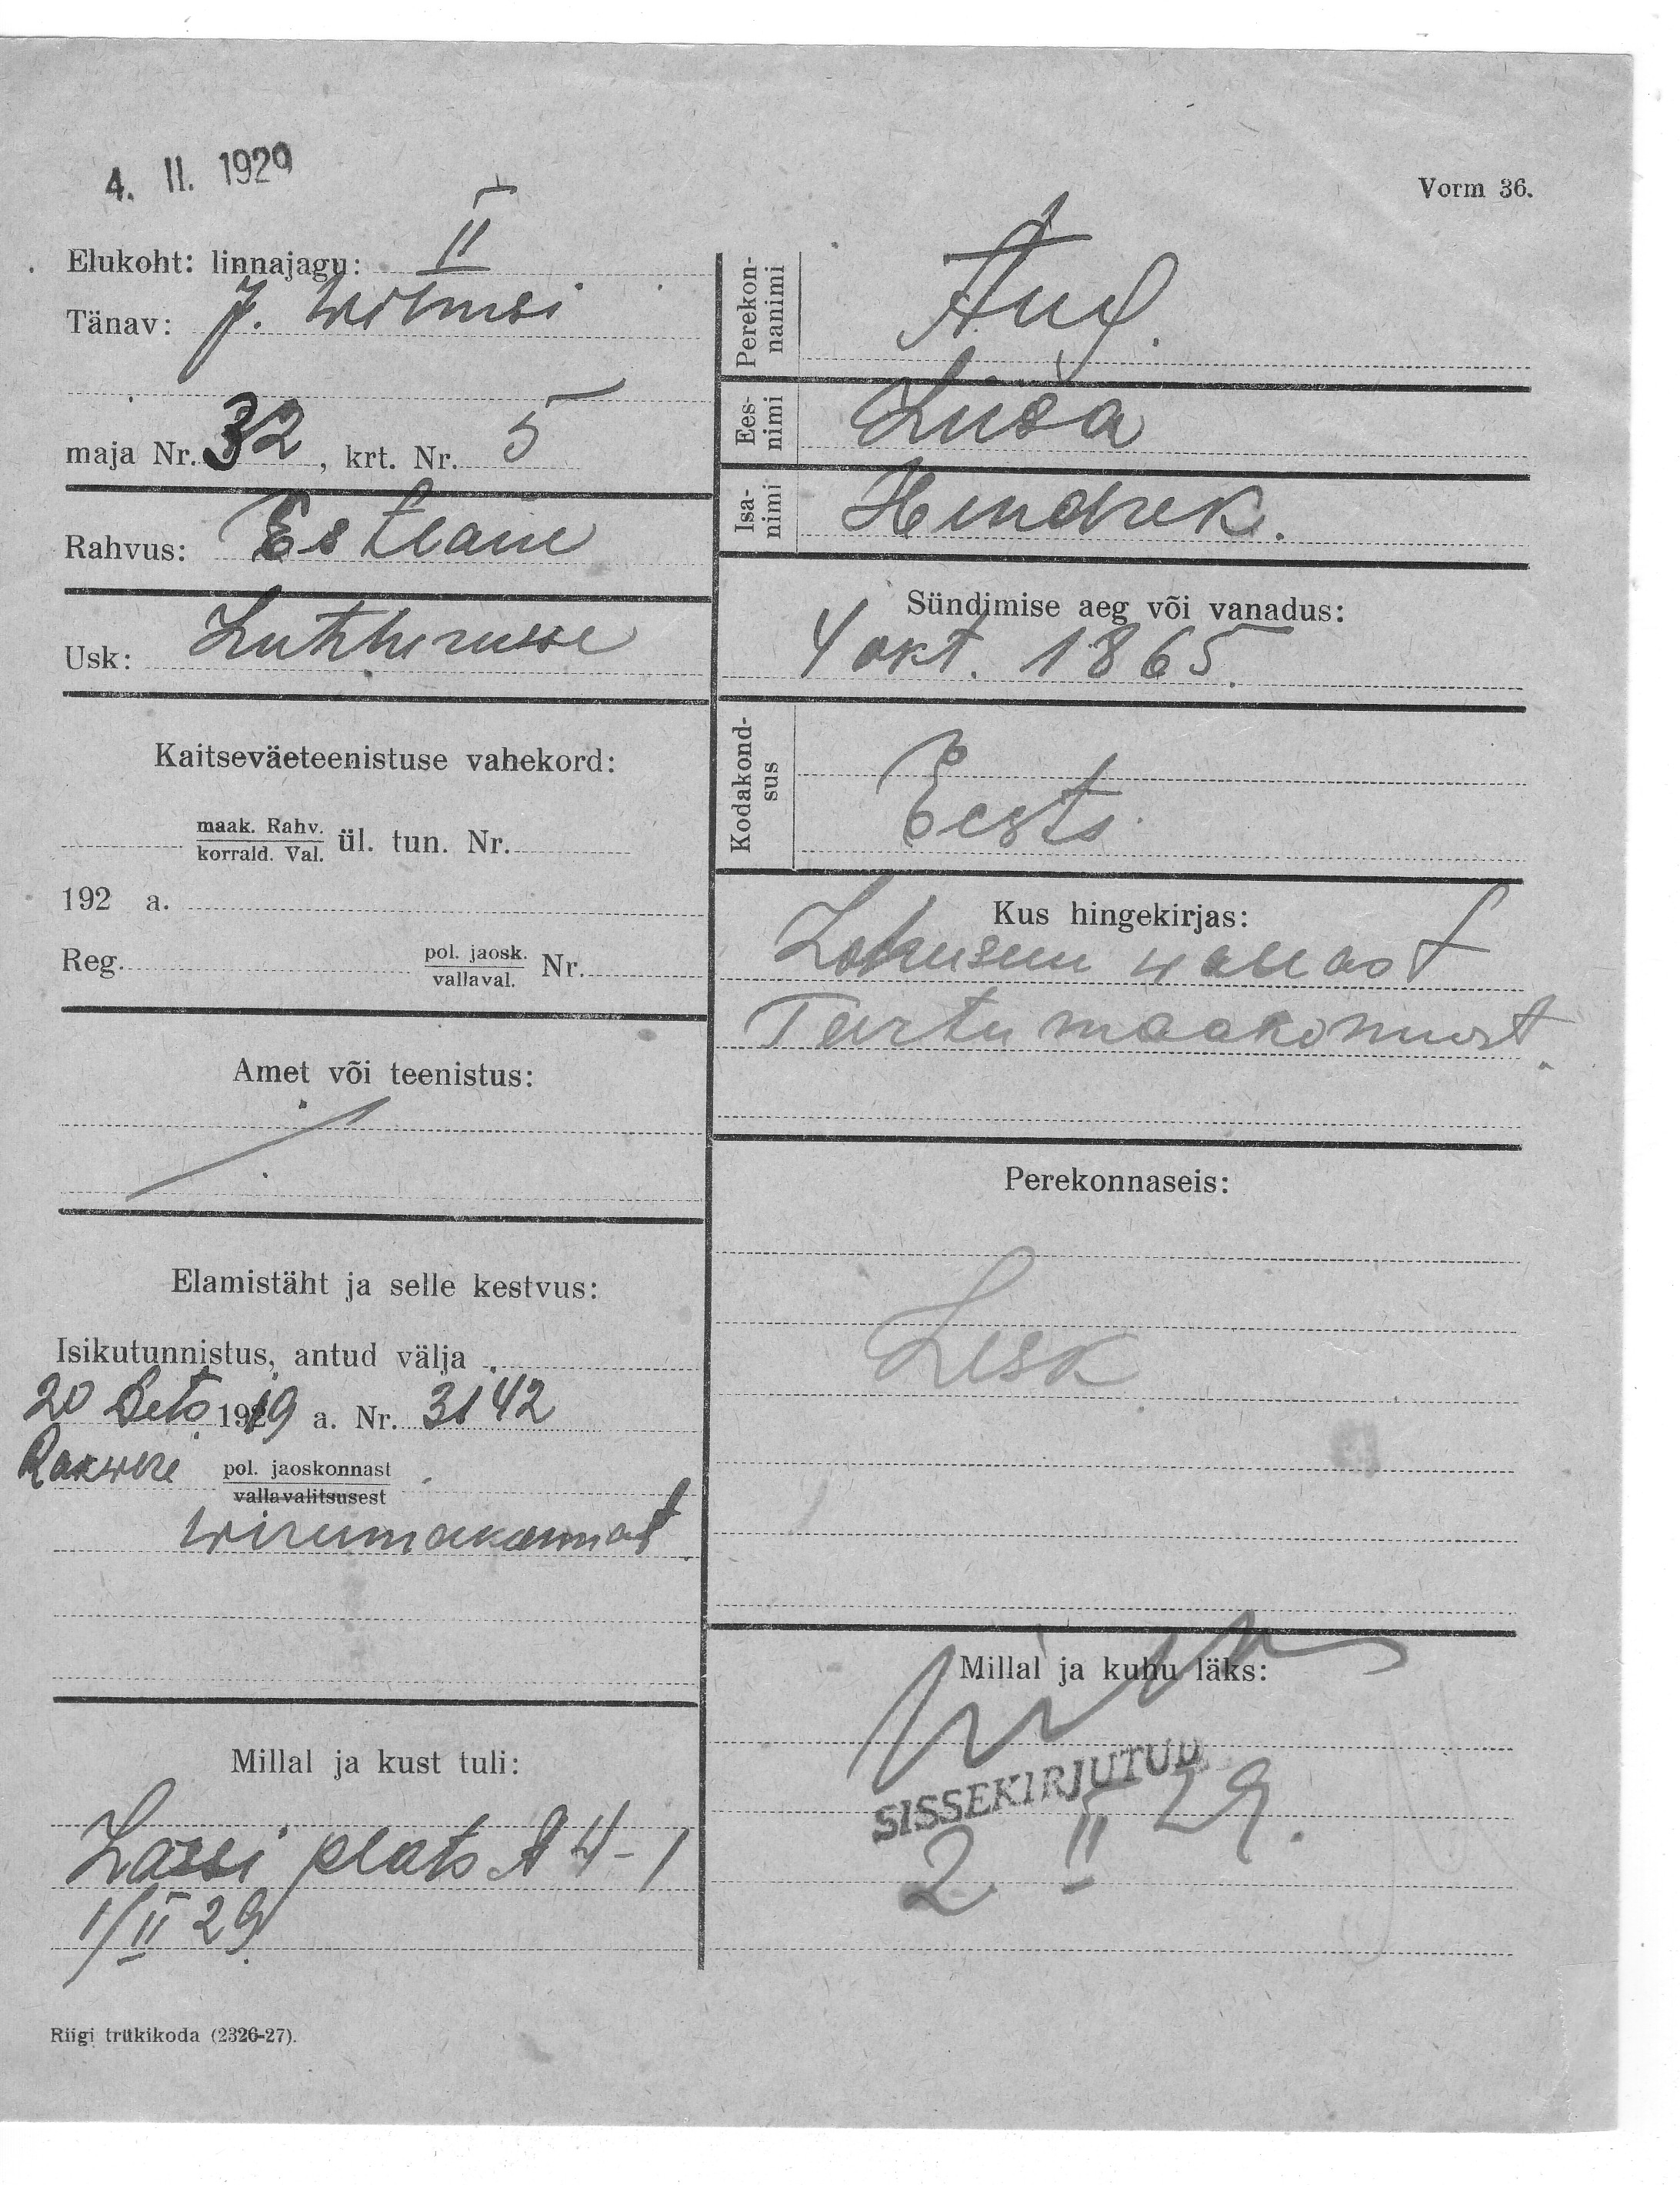 4. II. 1929
Vorm 36.
Elukoht: linnajagu: II
Tänav: J. Wilmsi
maja Nr. 32, krt. Nr. 5
Rahvus: Estlane
Usk: Lutherusse
Kaitseväeteenistuse vahekord:
maak. Rahv.
korrald. Val. ül. tun. Nr.
192 a.
Reg. pol. jaosk.
vallaval. Nr.
Amet või teenistus:
Elamistäht ja selle kestvus:
Isikutunnistus, antud välja
20 1919 a. Nr. 3142
Rakwere pol. jaoskonnast
vallavalitsusest
Wirumakonnas
Millal ja kust tuli:
Lassi plats A 4-1
1/II 29
Perekon-
nanimi
Aug.
Ees-
nimi
Liisa
Isa-
nimi
Hendrek.
Sündimise aeg või vanadus:
4 okt. 1865.
Kodakond-
sus
Eesti
Kus hingekirjas:
wallast
Tartu maakonnast.
Perekonnaseis:
Lesk
Millal ja kuhu läks:
SISSEKIRJUTUD
2 II 29.
Riigi trükikoda (2326-27).